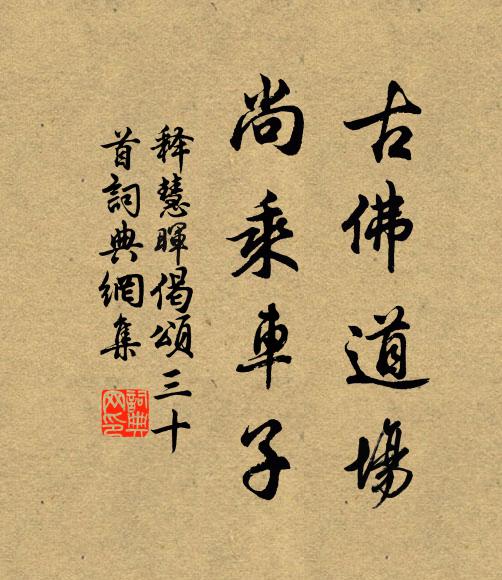 古佛道場
尚乘車子
釋慧暉偈頌三十
首詞典網集
詞典網印